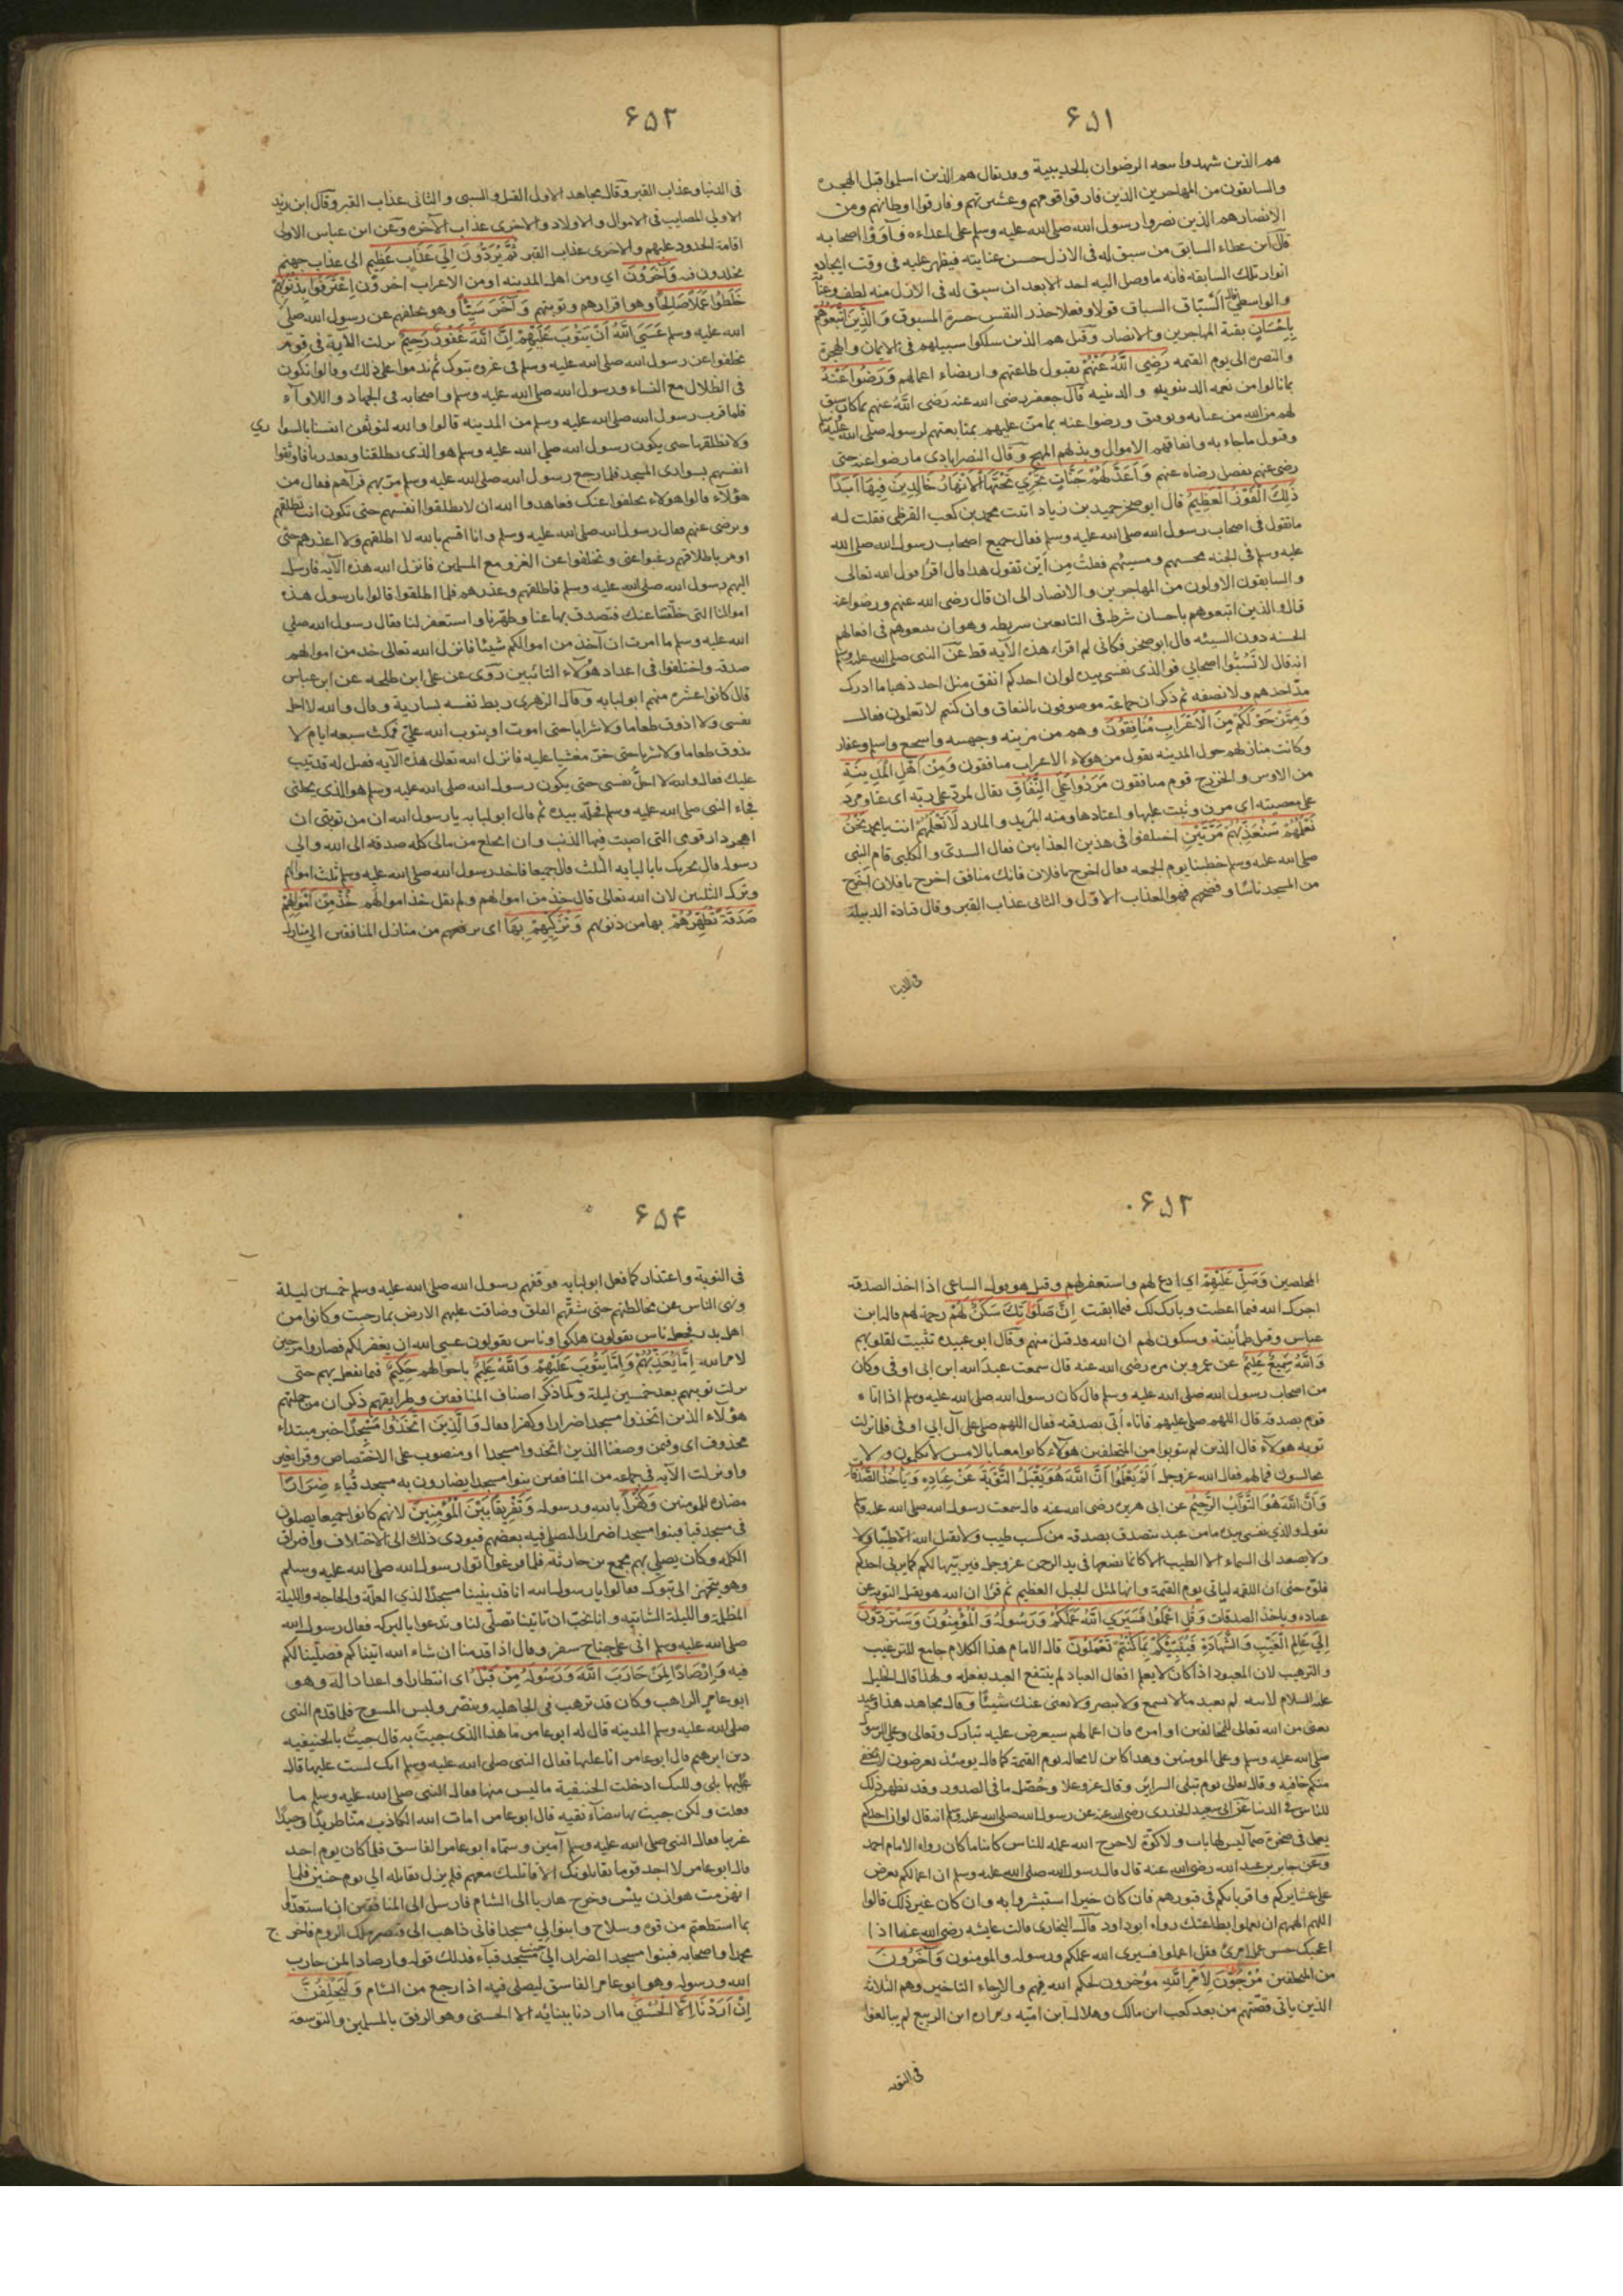 ٦٥١
هم الذين شهدوا بيعة الرضوان بالحديبية وقد يقال هم الذين اسلموا قبل الهجرة
والسابقون من المهاجرين الذين فارقوا قومهم وعشيرتهم وفارقوا اوطانهم ومن
الانصار هم الذين نصروا رسول الله صلى الله عليه وسلم على اعدائه وآووا اصحابه
قال ابن عطاء السابق من سبق له فى الازل حسن عنايته فيظهر عليه فى وقت ايجاده
انوار تلك السابقه فانه ما وصل اليه احد الا بعد ان سبق له فى الازل منه لطف وعناية
والواسطي قال السّبّاق السباق قولا وفعلا حذر النفس حسرة المسبوق وَالَّذِينَ اتَّبَعُوهُمْ
بِاِحْسَانٍ بقية المهاجرين والانصار وقيل هم الذين سلكوا سبيلهم فى الايمان والهجرة
والنصرة الى يوم القيمة رَضِيَ اللَّهُ عَنْهُمْ بقبول طاعتهم وارتضاء اعمالهم وَرَضُوا عَنْهُ
بما نالوا من نعمه الدنيوية والدينيه قال جعفر رضى الله عنه رَضِيَ اللَّهُ عنهم بما كان سبق
لهم من الله من عنايه وتوفيق ورضوا عنه بما منّ عليهم بمتابعتهم لرسوله صلى الله عليه وسلم
وقبول ما جاء به وانفاقهم الاموال وبذلهم المهج وقال النصرابادى ما رضوا عنه حتى
رضى عنهم بفضل رضاه عنهم وَاَعَدَّ لَهُمْ جَنَّاتٍ تَجْرِي تَحْتَهَا الْاَنْهَارُ خَالِدِينَ فِيهَا اَبَدًا
ذَلِكَ الْفَوْزُ الْعَظِيمُ قال ابو صخر حميد بن زياد اتيت محمد بن كعب القرظى فقلت له
ما تقول فى اصحاب رسول الله صلى الله عليه وسلم فقال جميع اصحاب رسول الله صلى الله
عليه وسلم فى الجنه محسنهم ومسيئهم فقلت مِن اَين تقول هذا قال اقرأ قول الله تعالى
والسابقون الاولون من المهاجرين والانصار الى ان قال رضى الله عنهم ورضوا عنه
قال والذين اتبعوهم باحسان شرط فى التابعين شريطه وهو ان يتبعوهم فى افعالهم
الحسنه دون السيئه قال ابو صخر فكانى لم اقراء هذه الآيه قط عن النبى صلى الله عليه وسلم
انه قال لا تَسُبُّوا اصحابي فوالذى نفسى بيده لو ان احدكم انفق مثل احد ذهبا ما ادرك
مدّ احدهم ولا نصفه ثم ذكر ان جماعة موصوفون بالنفاق وان كنتم لا تعلمون فقال
وَمِمَّنْ حَوْلَكُمْ مِنَ الْاَعْرَابِ مُنَافِقُونَ وهم من مزينه وجهينه واشجع واسلم وغفار
وكانت منازلهم حول المدينه يقول من هؤلاء الاعراب منافقون وَمِنْ اَهْلِ الْمَدِينَةِ
من الاوس والخزرج قوم منافقون مَرَدُوا عَلَى النِّفَاقِ يقال تمرد على ربّه اى عتا ومرد
على معصيته اي مرن وثبت عليها واعتادها ومنه المريد والمارد لَا تَعْلَمُهُمْ انت يا محمد نَحْنُ
نَعْلَمُهُمْ سَنُعَذِّبُهُمْ مَرَّتَيْنِ اختلفوا فى هذين العذابين فقال السدى والكلبى قام النبى
صلى الله عليه وسلم خطيبا يوم الجمعه فقال اخرج يا فلان فانك منافق اخرج يا فلان اخرج
من المسجد ناسًا وفضحهم فهو العذاب الاوّل والثانى عذاب القبر وقال قتادة الدبيلة
فى الدنيا
٦٥٢
فى الدنيا وعذاب القبر وقال مجاهد الاول القتل والسبى والثانى عذاب القبر وقال ابن زيد
الاولى المصايب فى الاموال والاولاد والاخرى عذاب الآخره وعن ابن عباس الاولى
اقامة الحدود عليهم والاخرى عذاب القبر ثُمَّ يُرَدُّونَ اِلَى عَذَابٍ عَظِيمٍ الى عذاب جهنم
يخلدون فيه وَآخَرُونَ اي ومن اهل المدينه او من الاعراب اخرون اِعْتَرَفُوا بِذُنُوبِهِمْ
خَلَطُوا عَمَلًا صَالِحًا وهو اقرارهم وتوبتهم وَآخَرَ سَيِّئًا وهو تخلفهم عن رسول الله صلى
الله عليه وسلم عَسَى اللَّهُ اَنْ يَتُوبَ عَلَيْهِمْ اِنَّ اللَّهَ غَفُورٌ رَحِيمٌ نزلت الآية فى قوم
تخلفوا عن رسول الله صلى الله عليه وسلم فى غزوه تبوك ثم ندموا على ذلك وقالوا نكون
فى الظلال مع النساء ورسول الله صلى الله عليه وسلم واصحابه فى الجهاد واللاوآء
فلما قرب رسول الله صلى الله عليه وسلم من المدينه قالوا والله لنوثقن انفسنا بالسواري
ولا نطلقها حتى يكون رسول الله صلى الله عليه وسلم هو الذى يطلقنا ويعذرنا فاوثقوا
انفسهم بسوارى المسجد فلما رجع رسول الله صلى الله عليه وسلم مرّ بهم فرآهم فقال من
هؤلاء قالوا هؤلاء تخلفوا عنك فعاهدوا الله ان لا يطلقوا انفسهم حتى تكون انت تطلقهم
وترضى عنهم فقال رسول الله صلى الله عليه وسلم وانا اقسم بالله لا اطلقهم ولا اعذرهم حتى
اومر باطلاقهم رغبوا عنى وتخلفوا عن الغزو مع المسلمين فانزل الله هذه الآيه فارسل
اليهم رسول الله صلى الله عليه وسلم فاطلقهم وعذرهم فلما اطلقوا قالوا يا رسول هذه
اموالنا التى خلّفتنا عنك فتصدق بها عنا وطهّرنا واستغفر لنا فقال رسول الله صلى
الله عليه وسلم ما امرت ان آخذ من اموالكم شيئا فانزل الله تعالى خذ من اموالهم
صدقه واختلفوا فى اعداد هؤلاء التائبين روى عن على ابن طلحه عن ابن عباس
قال كانوا عشره منهم ابو لبابه وقال الزهرى ربط نفسه بسارية وقال والله لا احل
نفسى ولا اذوق طعاما ولا شرابا حتى اموت او يتوب الله علىّ فمكث سبعه ايام لا
يذوق طعاما ولا شربا حتى خرّ مغشيا عليه فانزل الله تعالى هذه الآيه فقيل له قد تيب
عليك فقال والله لا احلّ نفسى حتى يكون رسول الله صلى الله عليه وسلم هو الذى يحلنى
فجاء النبى صلى الله عليه وسلم فحلّه بيده ثم قال ابو لبابه يا رسول الله ان من توبتى ان
اهجر دار قومى التى اصبت فيها الذنب وان انخلع من مالى كله صدقة الى الله والى
رسوله قال يجزيك يا با لبابه الثلث قالا جميعا فاخذ رسول الله صلى الله عليه وسلم ثلث اموالهم
وترك الثلثين لان الله تعالى قال خذ من اموالهم ولم يقل خذ اموالهم خُذْ مِنْ اَمْوَالِهِمْ
صَدَقَةً تُطَهِّرُهُمْ بها من ذنوبهم وَتُزَكِّيهِمْ بِهَا اى ترفعهم من منازل المنافقين الى منازل
٦٥٣
المخلصين وَصَلِّ عَلَيْهِمْ اي ادع لهم واستغفر لهم وقيل هو يقول الساعى اذا اخذ الصدقة
اجرك الله فيما اعطيت وبارك لك فيما ابقيت اِنَّ صَلَوَاتِكَ سَكَنٌ لَهُمْ رحمة لهم قاله ابن
عباس وقيل طمأنينة وسكون لهم ان الله قد قبل منهم وقال ابو عبيده تثبيت لقلوبهم
وَاللَّهُ سَمِيعٌ عَلِيمٌ عن عمرو بن مره رضى الله عنه قال سمعت عبد الله ابن ابى اوفى وكان
من اصحاب رسول الله صلى الله عليه وسلم قال كان رسول الله صلى الله عليه وسلم اذا اتاه
قوم بصدقة قال اللهم صلى عليهم فاتاه اُبَىّ بصدقته فقال اللهم صلى على آل ابى اوفى فلما نزلت
توبه هؤلاء قال الذين لم يتوبوا من المتخلفين هؤلاء كانوا معنا بالامس لا يكلمون ولا
يجالسون فما لهم فقال الله عزوجل اَلَمْ يَعْلَمُوا اَنَّ اللَّهَ هُوَ يَقْبَلُ التَّوْبَةَ عَنْ عِبَادِهِ وَيَاْخُذُ الصَّدَقَاتِ
وَاَنَّ اللَّهَ هُوَ التَّوَّابُ الرَّحِيمُ عن ابى هريره رضى الله عنه قال سمعت رسول الله صلى الله عليه وسلم
يقول والذي نفسى بيده ما من عبد يتصدق بصدقه من كسب طيب ولا يقبل الله الا طيبا ولا
ولا يصعد الى السماء الا الطيب الا كانما يضعها فى يد الرحمن عزوجل فيربيها لكم كما يربى احدكم
فلوّه حتى ان اللقمه لياتى يوم القيمة وانها لمثل الجبل العظيم ثم قرأ ان الله هو يقبل التوبه عن
عباده وياخذ الصدقات وَقُلِ اعْمَلُوا فَسَيَرَى اللَّهُ عَمَلَكُمْ وَرَسُولُهُ وَالْمُؤْمِنُونَ وَسَتُرَدُّونَ
اِلَى عَالِمِ الْغَيْبِ وَالشَّهَادَةِ فَيُنَبِّئُكُمْ بِمَا كُنْتُمْ تَعْمَلُونَ قال الامام هذا الكلام جامع للترغيب
والترهيب لان المعبود اذا كان لا يعلم افعال العباد لم ينتفع العبد بفعله ولهذا قال الخليل
عليه السلام لابيه لم تعبد ما لا يسمع ولا يبصر ولا يغنى عنك شيئًا وقال مجاهد هذا وعيد
يعنى من الله تعالى للمخالفين اوامره فان اعمالهم سيعرض عليه تبارك وتعالى وعلى الرسول
صلى الله عليه وسلم وعلى المومنين وهذا كاين لا محاله يوم القيمة كما قال يومئذ تعرضون لا تخفى
منكم خافيه وقال تعالى يوم تبلى السرائر وقال عزوعلا وحُصّل ما فى الصدور وقد يظهر ذلك
للناس فى الدنيا عن ابى سعيد الخدرى رضى الله عنه عن رسول الله صلى الله عليه وسلم انه قال لو ان احدكم
يعمل فى صخرة صمآ ليس لها باب ولا كوّة لاخرج الله عمله للناس كاينا ما كان رواه الامام احمد
وعن جابر بن عبد الله رضى الله عنه قال قال رسول الله صلى الله عليه وسلم ان اعمالكم تعرض
على عشايركم واقربائكم فى قبورهم فان كان خيرا استبشروا به وان كان غير ذلك قالوا
اللهم الهمهم ان يعملوا بطاعتك رواه ابو داود قال البخارى قالت عايشه رضى الله عنها اذا
اعجبك حسن عمل امرئ فقل اعملوا فسيرى الله عملكم ورسوله والمومنون وَآخَرُونَ
من المتخلفين مُرْجَوْنَ لِاَمْرِ اللَّهِ موُخرون لحكم الله فيهم والارجاء التاخير وهم الثلاثة
الذين ياتى قصّتهم من بعد كعب ابن مالك وهلال ابن اميّه ومراره ابن الربيع لم يبالغوا
فى التوبه
٦٥٤
فى التوبة واعتذار كما فعل ابو لبابه فوقفهم رسول الله صلى الله عليه وسلم خمسين ليلة
ونهى الناس عن مخالطتهم حتى شفّهم القلق وضاقت عليهم الارض بما رحبت وكانوا من
اهل بدر فجعل ناس يقولون هلكوا وناس يقولون عسى الله ان يغفر لكم فصاروا مرجين
لامر الله اِمَّا يُعَذِّبُهُمْ وَاِمَّا يَتُوبُ عَلَيْهِمْ وَاللَّهُ عَلِيمٌ باحوالهم حَكِيمٌ فيما يفعل بهم حتى
نزلت توبتهم بعد خمسين ليلة ولما ذكر اصناف المنافقين وطرايقهم ذكر ان من جملتهم
هؤلاء الذين اتخذوا مسجدا ضرارا وكفرا فقال وَالَّذِينَ اتَّخَذُوا مَسْجِدًا خبر مبتداء
محذوف اى وفيمن وصفنا الذين اتخذوا مسجدا او منصوب على الاختصاص وقرأ بغير
واو نزلت الآيه فى جماعه من المنافقين بنوا مسجدا يضارون به مسجد قُبَاء ضِرَارًا
مضاره للمومنين وَكُفْرًا بالله ورسوله وَتَفْرِيقًا بَيْنَ الْمُؤْمِنِينَ لانهم كانوا جميعا يصلون
فى مسجد قبا فبنوا مسجدا ضرارا ليصلى فيه بعضهم فيودى ذلك الى الاختلاف وافتراق
الكلمه وكان يصلى بهم مجمع بن حارثه فلما فرغوا اتوا رسول الله صلى الله عليه وسلم
وهو يتجهز الى تبوك فقالوا يا رسول الله انا قد بنينا مسجدًا لذي العلّة والحاجه والليلة
المظلمة والليلة الشاتيه وانا نحبّ ان تاتينا تصلّى لنا وتدعوا بالبركه فقال رسول الله
صلى الله عليه وسلم انى على جناح سفر وقال اذا قدمنا ان شاء الله اتيناكم فصلّينا لكم
فيه وَاِرْصَادًا لِمَنْ حَارَبَ اللَّهَ وَرَسُولَهُ مِنْ قَبْلُ اى انتظارا واعدادا له وهو
ابو عامر الراهب وكان قد ترهب فى الجاهليه وتنصّر ولبس المسوح فلما قدم النبى
صلى الله عليه وسلم المدينه قال له ابو عامر ما هذا الذى جيتَ به قال جيتُ بالحنيفيه
دين ابرهيم قال ابو عامر انا عليها فقال النبى صلى الله عليه وسلم انك لست عليها قال
عليها بلى ولكنك ادخلت الحنيفية ما ليس منها فقال النبى صلى الله عليه وسلم ما
فعلت ولكن جيت بها بيضآء نقيه قال ابو عامر امات الله الكاذب منا طريدًا وحيدًا
غريبا فقال النبى صلى الله عليه وسلم آمين وسمّاه ابو عامر الفاسق فلما كان يوم احد
قال ابو عامر لا اجد قوما يقاتلونك الا قاتلتك معهم فلم يزل يقاتله الى يوم حنين فلما
انهزمت هوازن يئس وخرج هاربا الى الشام فارسل الى المنافقين ان استعدّوا
بما استطعتم من قوه وسلاح وابنوا لى مسجدا فانى ذاهب الى قيصر ملك الروم فاخرج
محمدا واصحابه فبنوا مسجدا الضرار الى جنب مسجد قباء فذلك قوله وارصادا لمن حارب
الله ورسوله وهو ابو عامر الفاسق ليصلى فيه اذا رجع من الشام وَلَيَحْلِفُنَّ
اِنْ اَرَدْنَا اِلَّا الْحُسْنَى ما اردنا ببنائه الا الحسنى وهو الرفق بالمسلمين والتوسعة